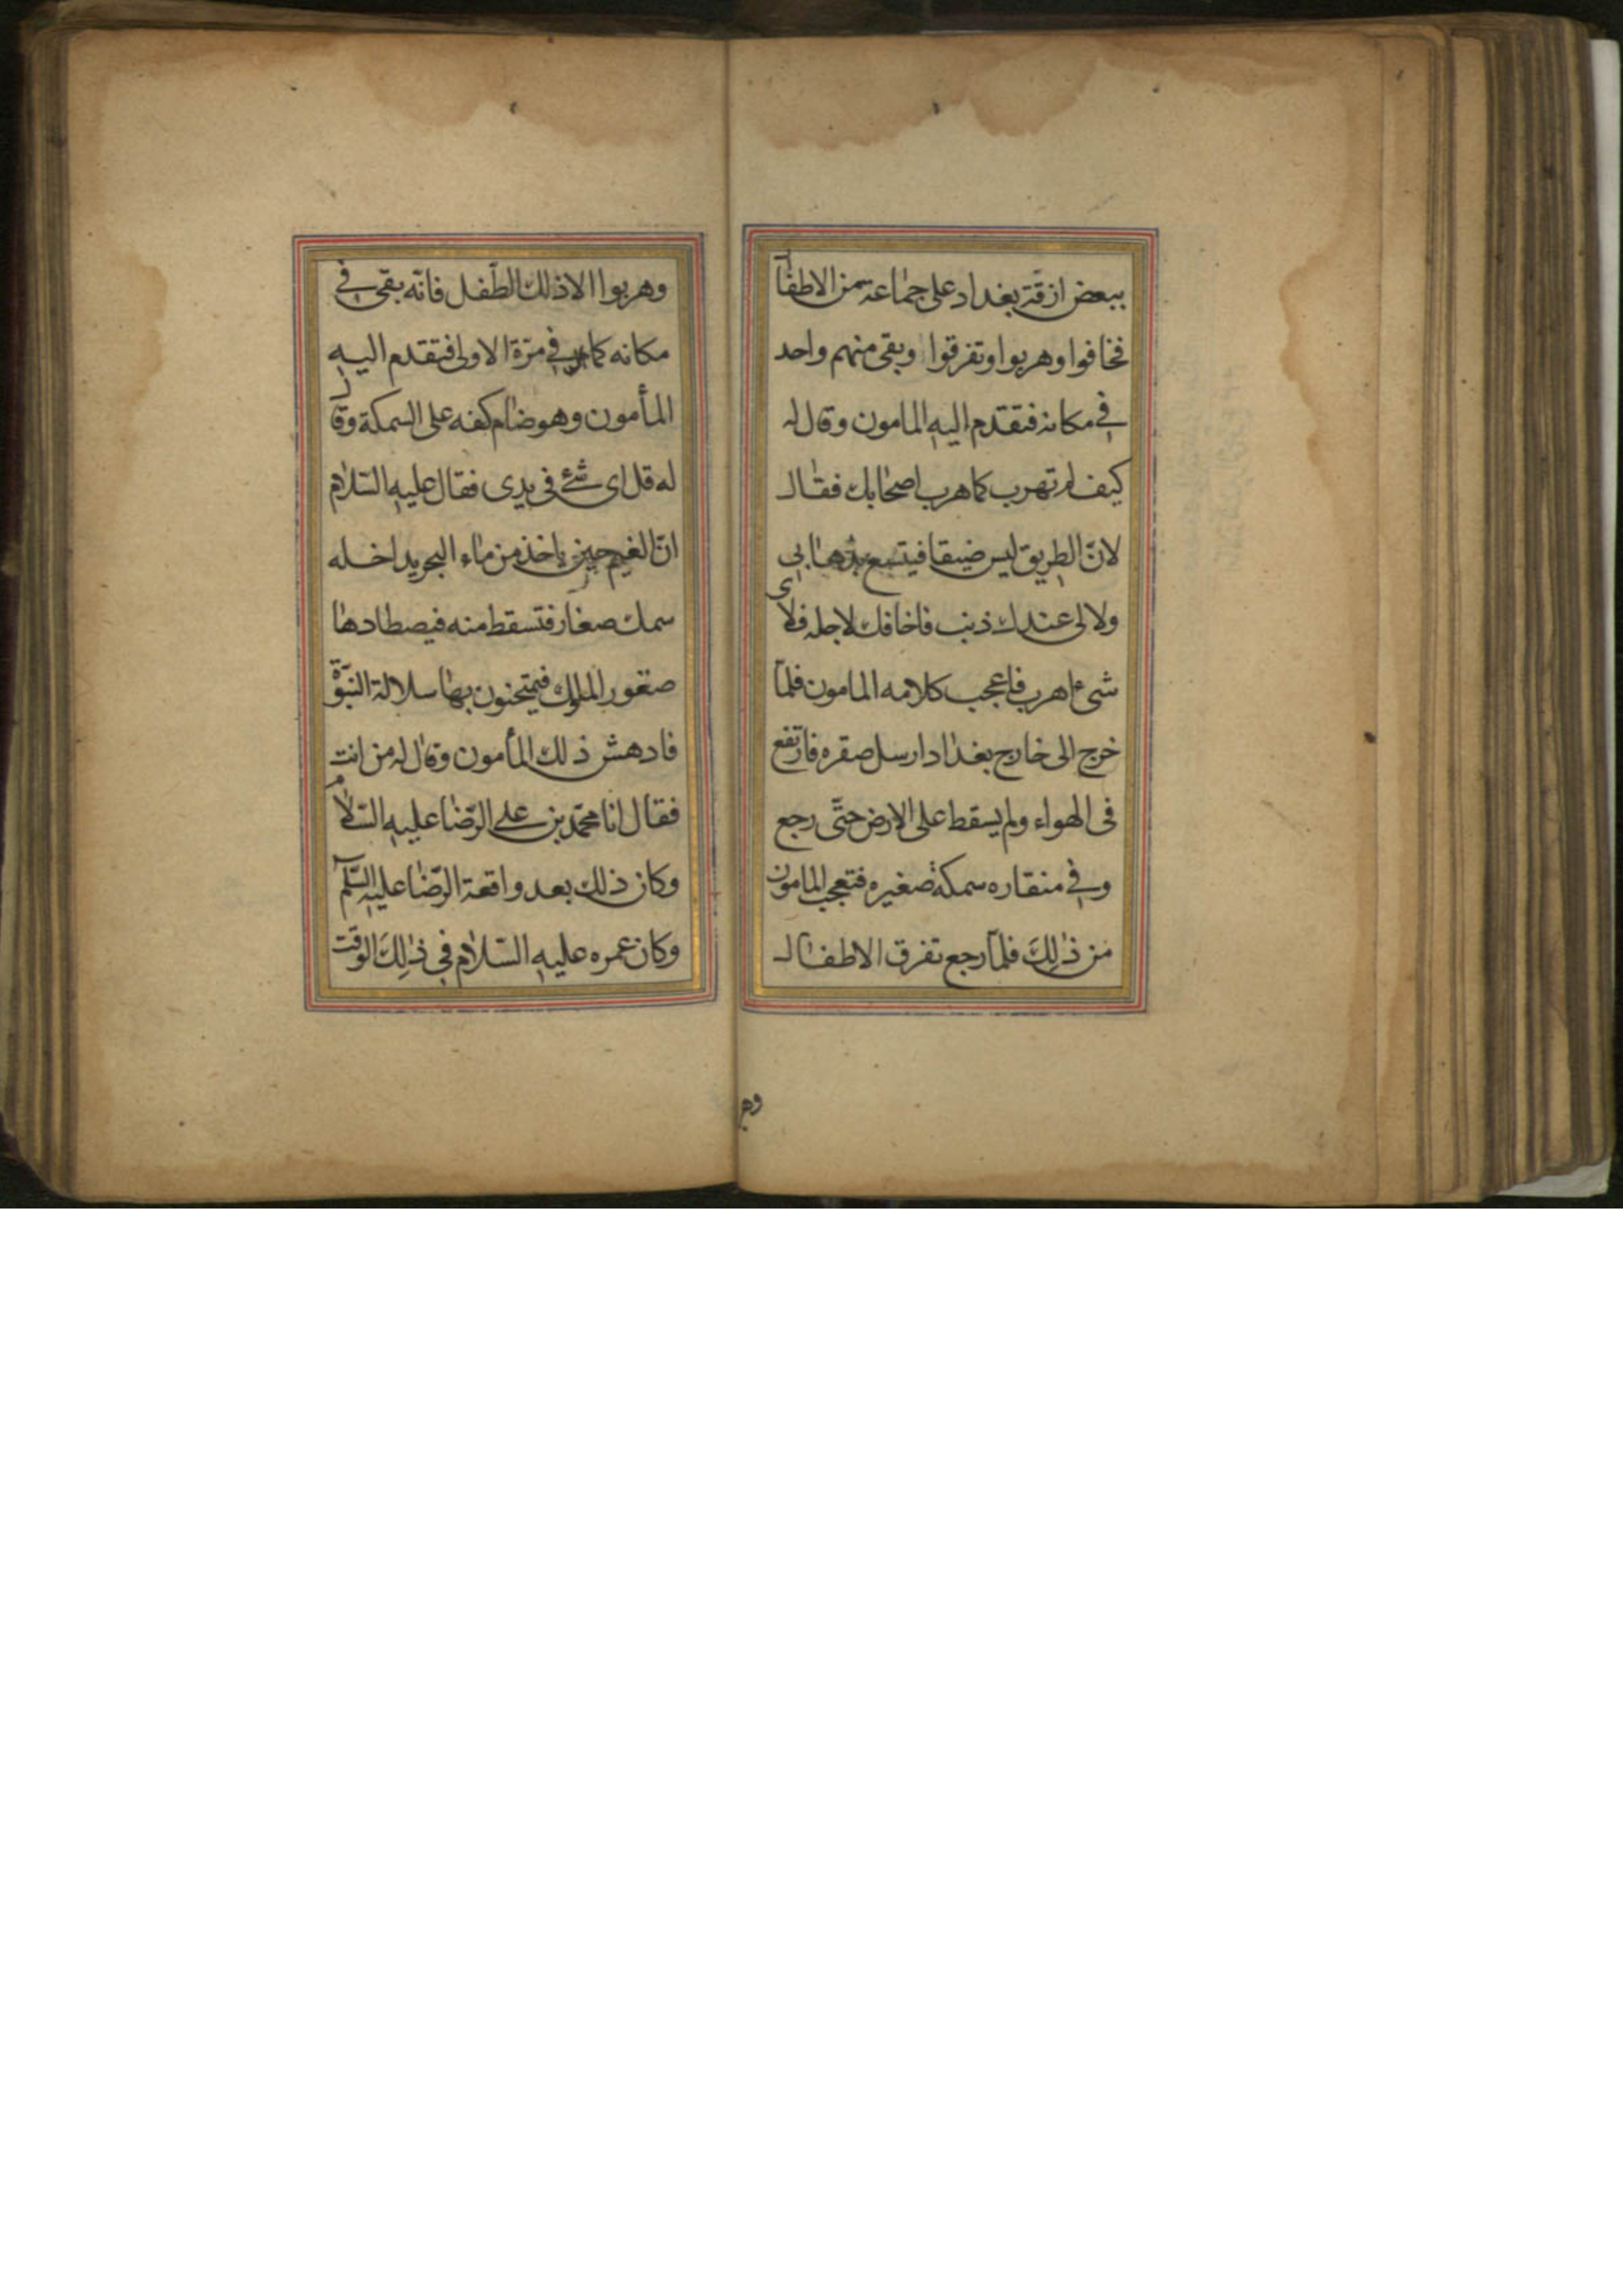 ببعض ازقة بغداد على جماعة من الاطفا
فخافوا وهربوا وتفرقوا وبقى منهم واحد
في مكانه فتقدم اليه المامون وقال له
كيف لم تهرب كما هرب اصحابك فقال
لانّ الطريق ليس ضيقا فيتسع بذهابي
ولا لى عندك ذنب فاخافك لاجله فلاى
شىء اهرب فاعجب كلامه المامون فلمّا
خرج الى خارج بغداد ارسل صقره فارتفع
فى الهواء ولم يسقط على الارض حتّى رجع
وفي منقاره سمكة صغيره فتعجب المامون
من ذٰلِكَ فلمّا رجع تفرق الاطفال
وهر
وهربوا الا ذلك الطّفل فانّه بقى في
مكانه كما في مرّة الاولى فتقدم اليه
المأمون وهو ضام كفه على السمكة وقال
له قل اى شئ فى يدى فقال عليه السّلام
انّ الغيم حين ياخذ من ماء البحر يداخله
سمك صغار فتسقط منه فيصطادها
صقور الملوك فيمتحنون بها سلالة النبوّة
فادهش ذلك المأمون وقال له من انت
فقال انا محمّد بن على الرّضا عليه السّلام
وكان ذلك بعد واقعة الرّضا عليه السّلم
وكان عمره عليه السّلام في ذٰلِكَ الوقت